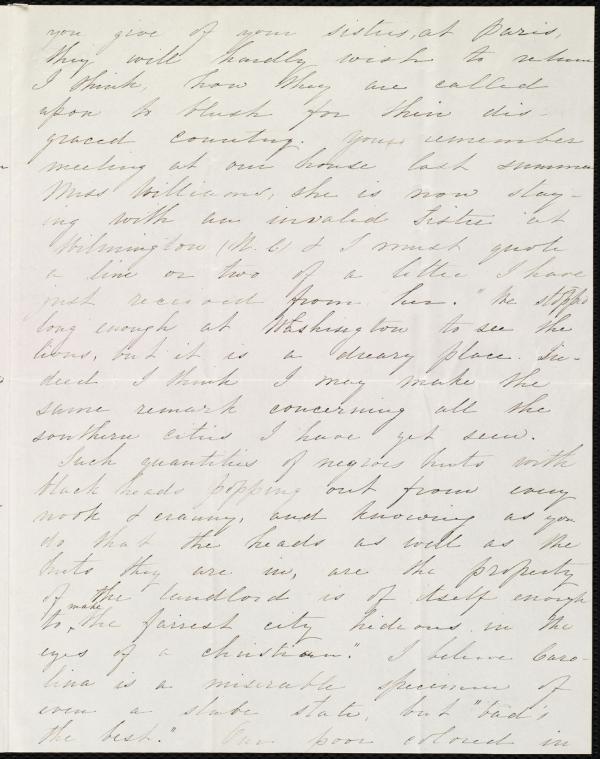 you give of your sisters, at Paris,
they will hardly wish to return
I think, how they are called
upon to blush for their dis-
graced country. You remember
meeting at our house last summer
Miss Williams, she is now stay-
ing with an invalid Sister at
Wilmington (N. C) & I must quote
a line or two of a letter I have
just received from her. "We stopped
long enough at Washington to see the
lions, but it is a dreary place. In-
deed I think I may make the
same remark concerning all the
southern cities I have yet seen.
Such quantities of negroes huts with
black heads popping out from every
nook & cranny, and knowing as you
do that the heads as well as the
huts they are in, are the property
of the landlord is of itself enough
to make the fairest city hideous in the
eyes of a christian." I believe Caro-
lina is a miserable specimen of
even a slave state, but "bad's
the best." Our poor colored in